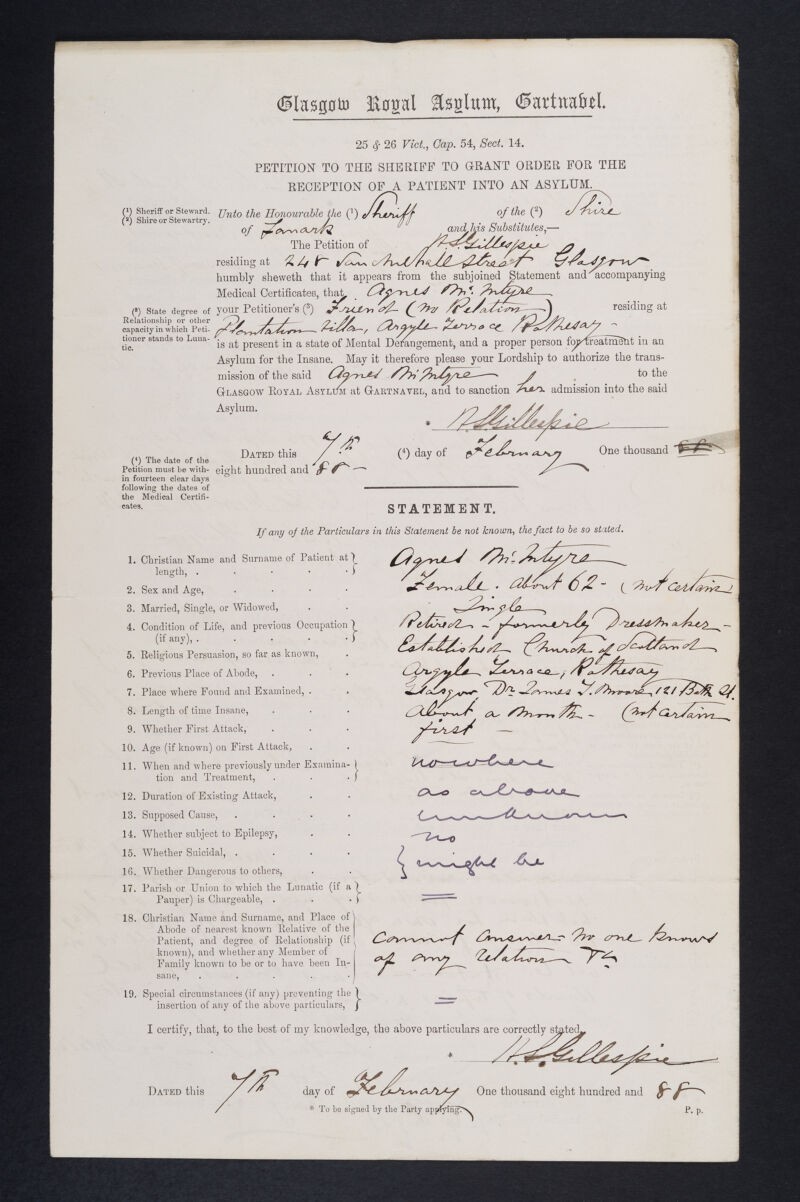 Glasgow Royal Asylum, Gartnabel.
25 & 26 Vict., Cap. 54, Sect. 14.
PETITION TO THE SHERIFF TO GRANT ORDER FOR THE
RECEPTION OF A PATIENT INTO AN ASYLUM.
(1) Sheriff or Steward.
(2) Shire or Stewartry.
Unto the Honourable the (1) Sheriff of the (2) Shire
of Lanark and his Substitutes,—
The Petition of H. S. Gillespie
residing at 248 Street Glasgow
humbly sheweth that it appears from the subjoined Statement and accompanying
Medical Certificates, that Agnes McIntyre
(3) State degree of
Relationship or other
capacity in which Peti-
tioner stands to Luna-
tic.
your Petitioner's (3) Friend (no Relation) residing at
Plantation Villa, Argyle Terrace Rothesay -
is at present in a state of Mental Derangement, and a proper person for treatment in an
Asylum for the Insane. May it therefore please your Lordship to authorize the trans-
mission of the said Agnes McIntyre to the
GLASGOW ROYAL ASYLUM at GARTNAVEL, and to sanction her admission into the said
Asylum.
* H S Gillespie
(4) The date of the
Petition must be with-
in fourteen clear days
following the dates of
the Medical Certifi-
cates.
DATED this 7th (4) day of February One thousand 88
eight hundred and 88 -
STATEMENT.
If any of the Particulars in this Statement be not known, the fact to be so stated.
1. Christian Name and Surname of Patient at
length, . Agnes McIntyre
2. Sex and Age, Female. About 62 - (not certain
3. Married, Single, or Widowed, Single
4. Condition of Life, and previous Occupation
(if any), . Retired - formerly Dressmaker -
5. Religious Persuasion, so far as known, Established Church of Scotland
6. Previous Place of Abode, Argyle Terrace, Rothesay
7. Place where Found and Examined, Glasgow, Dr James T. Moore, 121 Bath St.
8. Length of time Insane, About a month - (not certain
9. Whether First Attack, first -
10. Age (if known) on First Attack,
11. When and where previously under Examina-
tion and Treatment, nowhere
12. Duration of Existing Attack, as above
13. Supposed Cause, unknown
14. Whether subject to Epilepsy, no
15. Whether Suicidal, . might be
16. Whether Dangerous to others,
17. Parish or Union to which the Lunatic (if a
Pauper) is Chargeable, . =
18. Christian Name and Surname, and Place of
Abode of nearest known Relative of the
Patient, and degree of Relationship (if
known), and whether any Member of
Family known to be or to have been In-
sane,
cannot answer - no one knows
of any relation
19. Special circumstances (if any) preventing the
insertion of any of the above particulars, =
I certify, that, to the best of my knowledge, the above particulars are correctly stated.
* H. S. Gillespie
DATED this 7th day of February One thousand eight hundred and 88
* To be signed by the Party applying.
P. p.